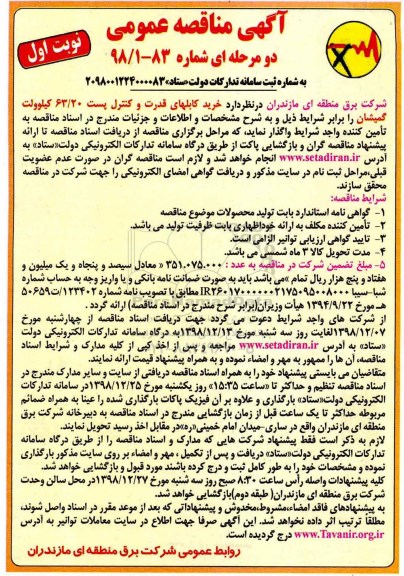 آگهی مناقصه عمومی
نوبت اول
دو مرحله ای شماره ۸۳-۹۸/۱
به شماره ثبت سامانه تدارکات دولت«ستاد»۲۰۹۸۰۰۱۲۲۴۰۰۰۰۸۳
شرکت برق منطقه ای مازندران درنظردارد خرید کابلهای قدرت و کنترل پست ۶۳/۲۰ کیلوولت
گمیشان را برابر شرایط ذیل و به شرح مشخصات و اطلاعات و جزئیات مندرج در اسناد مناقصه به
تأمین کننده واجد شرایط واگذار نماید، که مراحل برگزاری مناقصه از دریافت اسناد مناقصه تا ارائه
پیشنهاد مناقصه گران و بازگشایی پاکت از طریق درگاه سامانه تدارکات الکترونیکی دولت«ستاد» به
آدرس www.setadiran.ir انجام خواهد شد و لازم است مناقصه گران در صورت عدم عضویت
قبلی،مراحل ثبت نام در سایت مذکور و دریافت گواهی امضای الکترونیکی را جهت شرکت در مناقصه
محقق سازند.
شرایط مناقصه:
۱- گواهی نامه استاندارد بابت تولید محصولات موضوع مناقصه
۲- تأمین کننده مکلف به ارائه خوداظهاری بابت ظرفیت تولید می باشد.
۳- تایید گواهی ارزیابی توانیر الزامی است.
۴- مدت تحویل کالا ۳ ماه شمسی می باشد.
۵- مبلغ تضمین شرکت در مناقصه به عدد : ۳۵۱.۰۷۵.۰۰۰ « معادل سیصد و پنجاه و یک میلیون و
هفتاد و پنج هزار ریال تمام »می باشد باید به صورت ضمانت نامه بانکی و یا واریز وجه به حساب شماره
شبا-سیبا IR۲۶۰۱۷۰۰۰۰۰۰۰۲۱۷۵۰۹۵۰۰۸۰۰۰ مطابق با تصویب نامه شماره ۱۲۳۴۰۲/ت۵۰۶۵۹
هـ مورخ ۱۳۹۴/۹/۲۲ هیأت وزیران(برابر شرح مندرج در اسناد مناقصه) ارائه گردد .
از شرکت های واجد شرایط دعوت می گردد جهت دریافت اسناد مناقصه از چهارشنبه مورخ
۱۳۹۸/۱۲/۰۷لغایت روز سه شنبه مورخ ۱۳۹۸/۱۲/۱۳به درگاه سامانه تدارکات الکترونیکی دولت
«ستاد» به آدرس www.setadiran.ir مراجعه و پس از اخذ کپی از کلیه مدارک و شرایط اسناد
مناقصه، آن ها را ممهور به مهر و امضاء نموده و به همراه پیشنهاد قیمت ارائه نمایند.
متقاضیان می بایستی پیشنهاد خود را به همراه اسناد مناقصه دریافتی از سایت و سایر مدارک مندرج در
اسناد مناقصه تنظیم و حداکثر تا «ساعت ۱۵:۳۵» روز یکشنبه مورخ ۱۳۹۸/۱۲/۲۵در سامانه تدارکات
الکترونیکی دولت«ستاد» بارگذاری و علاوه بر آن فیزیک پاکات بارگذاری شده را عینا به همراه ضمائم
مربوطه حداکثر تا یک ساعت قبل از زمان بازگشایی مندرج در اسناد مناقصه به دبیرخانه شرکت برق
منطقه ای مازندران واقع در ساری-میدان امام خمینی«ره»در مقابل اخذ رسید تحویل نمایند.
لازم به ذکر است فقط پیشنهاد شرکت هایی که مدارک و اسناد مناقصه را از طریق درگاه سامانه
تدارکات الکترونیکی دولت«ستاد» دریافت و پس از تکمیل ، مهر و امضاء بر روی سایت مذکور بارگذاری
نموده و مشخصات خود را به طور کامل ثبت و درج کرده باشند مورد قبول و بازگشایی خواهد شد.
کلیه پیشنهادات واصله رأس ساعت ۸:۳۰ صبح روز سه شنبه مورخ ۱۳۹۸/۱۲/۲۷در محل سالن وحدت
شرکت برق منطقه ای مازندران( طبقه دوم)بازگشایی خواهد شد.
به پیشنهادهای فاقد امضاء،مشروط،مخدوش و پیشنهاداتی که بعد از موعد مقرر در اسناد واصل شوند،
مطلقا ترتیب اثر داده نخواهد شد. این آگهی صرفا جهت اطلاع در سایت معاملات توانیر به آدرس
www.Tavanir.org.ir درج گردیده است.
روابط عمومی شرکت برق منطقه ای مازندران